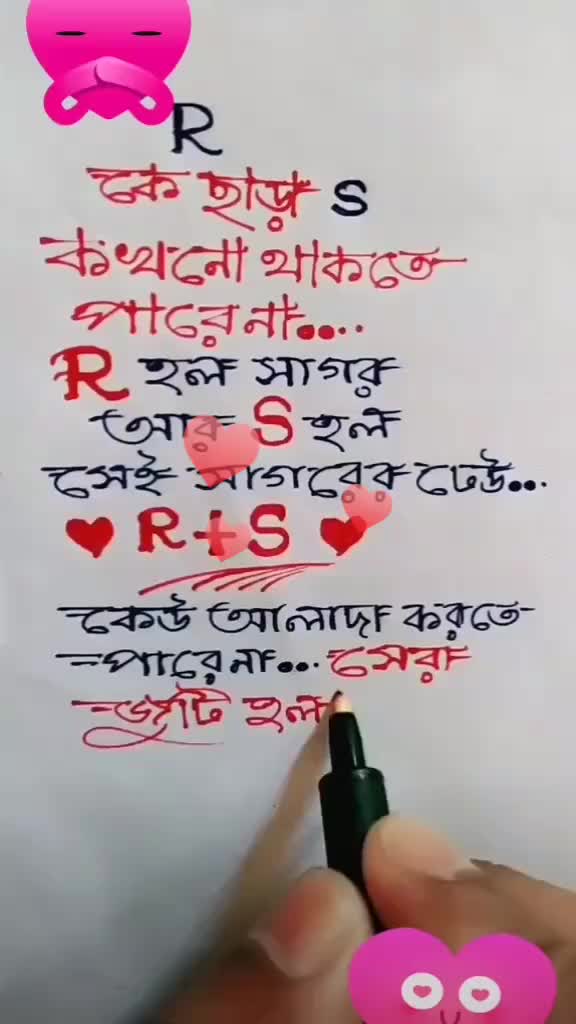 R
কে ছাড়া S
কখনো থাকতে
পারে না....
R হল সাগর
আর S হল
সেই সাগরের ঢেউ...
R + S
কেউ আলাদা করতে
পারে না... সেরা
জুটি হল